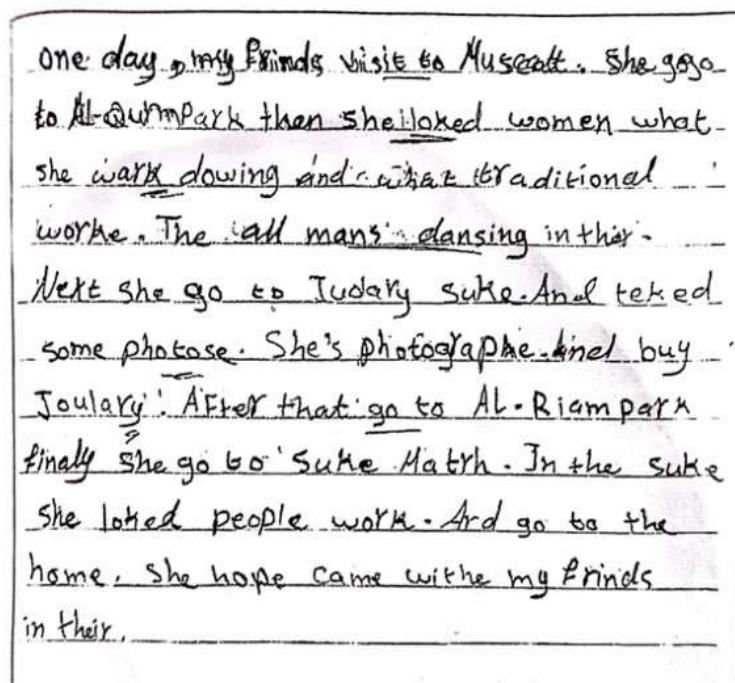 one day, my frinds visit to Muscatt. She gogo
to Al-Qurmpark then sheiloked women what
she wark dowing and what traditional
worke. The all mans dansing in thir.
Next she go to Judary suke. And teked
some photose. She's photographe. And buy
Joulary. After that go to AL-Riampark
finally she go to Suke Matrh. In the suke
she loked people work. And go to the
home. She hope came withe my frinds
in their.